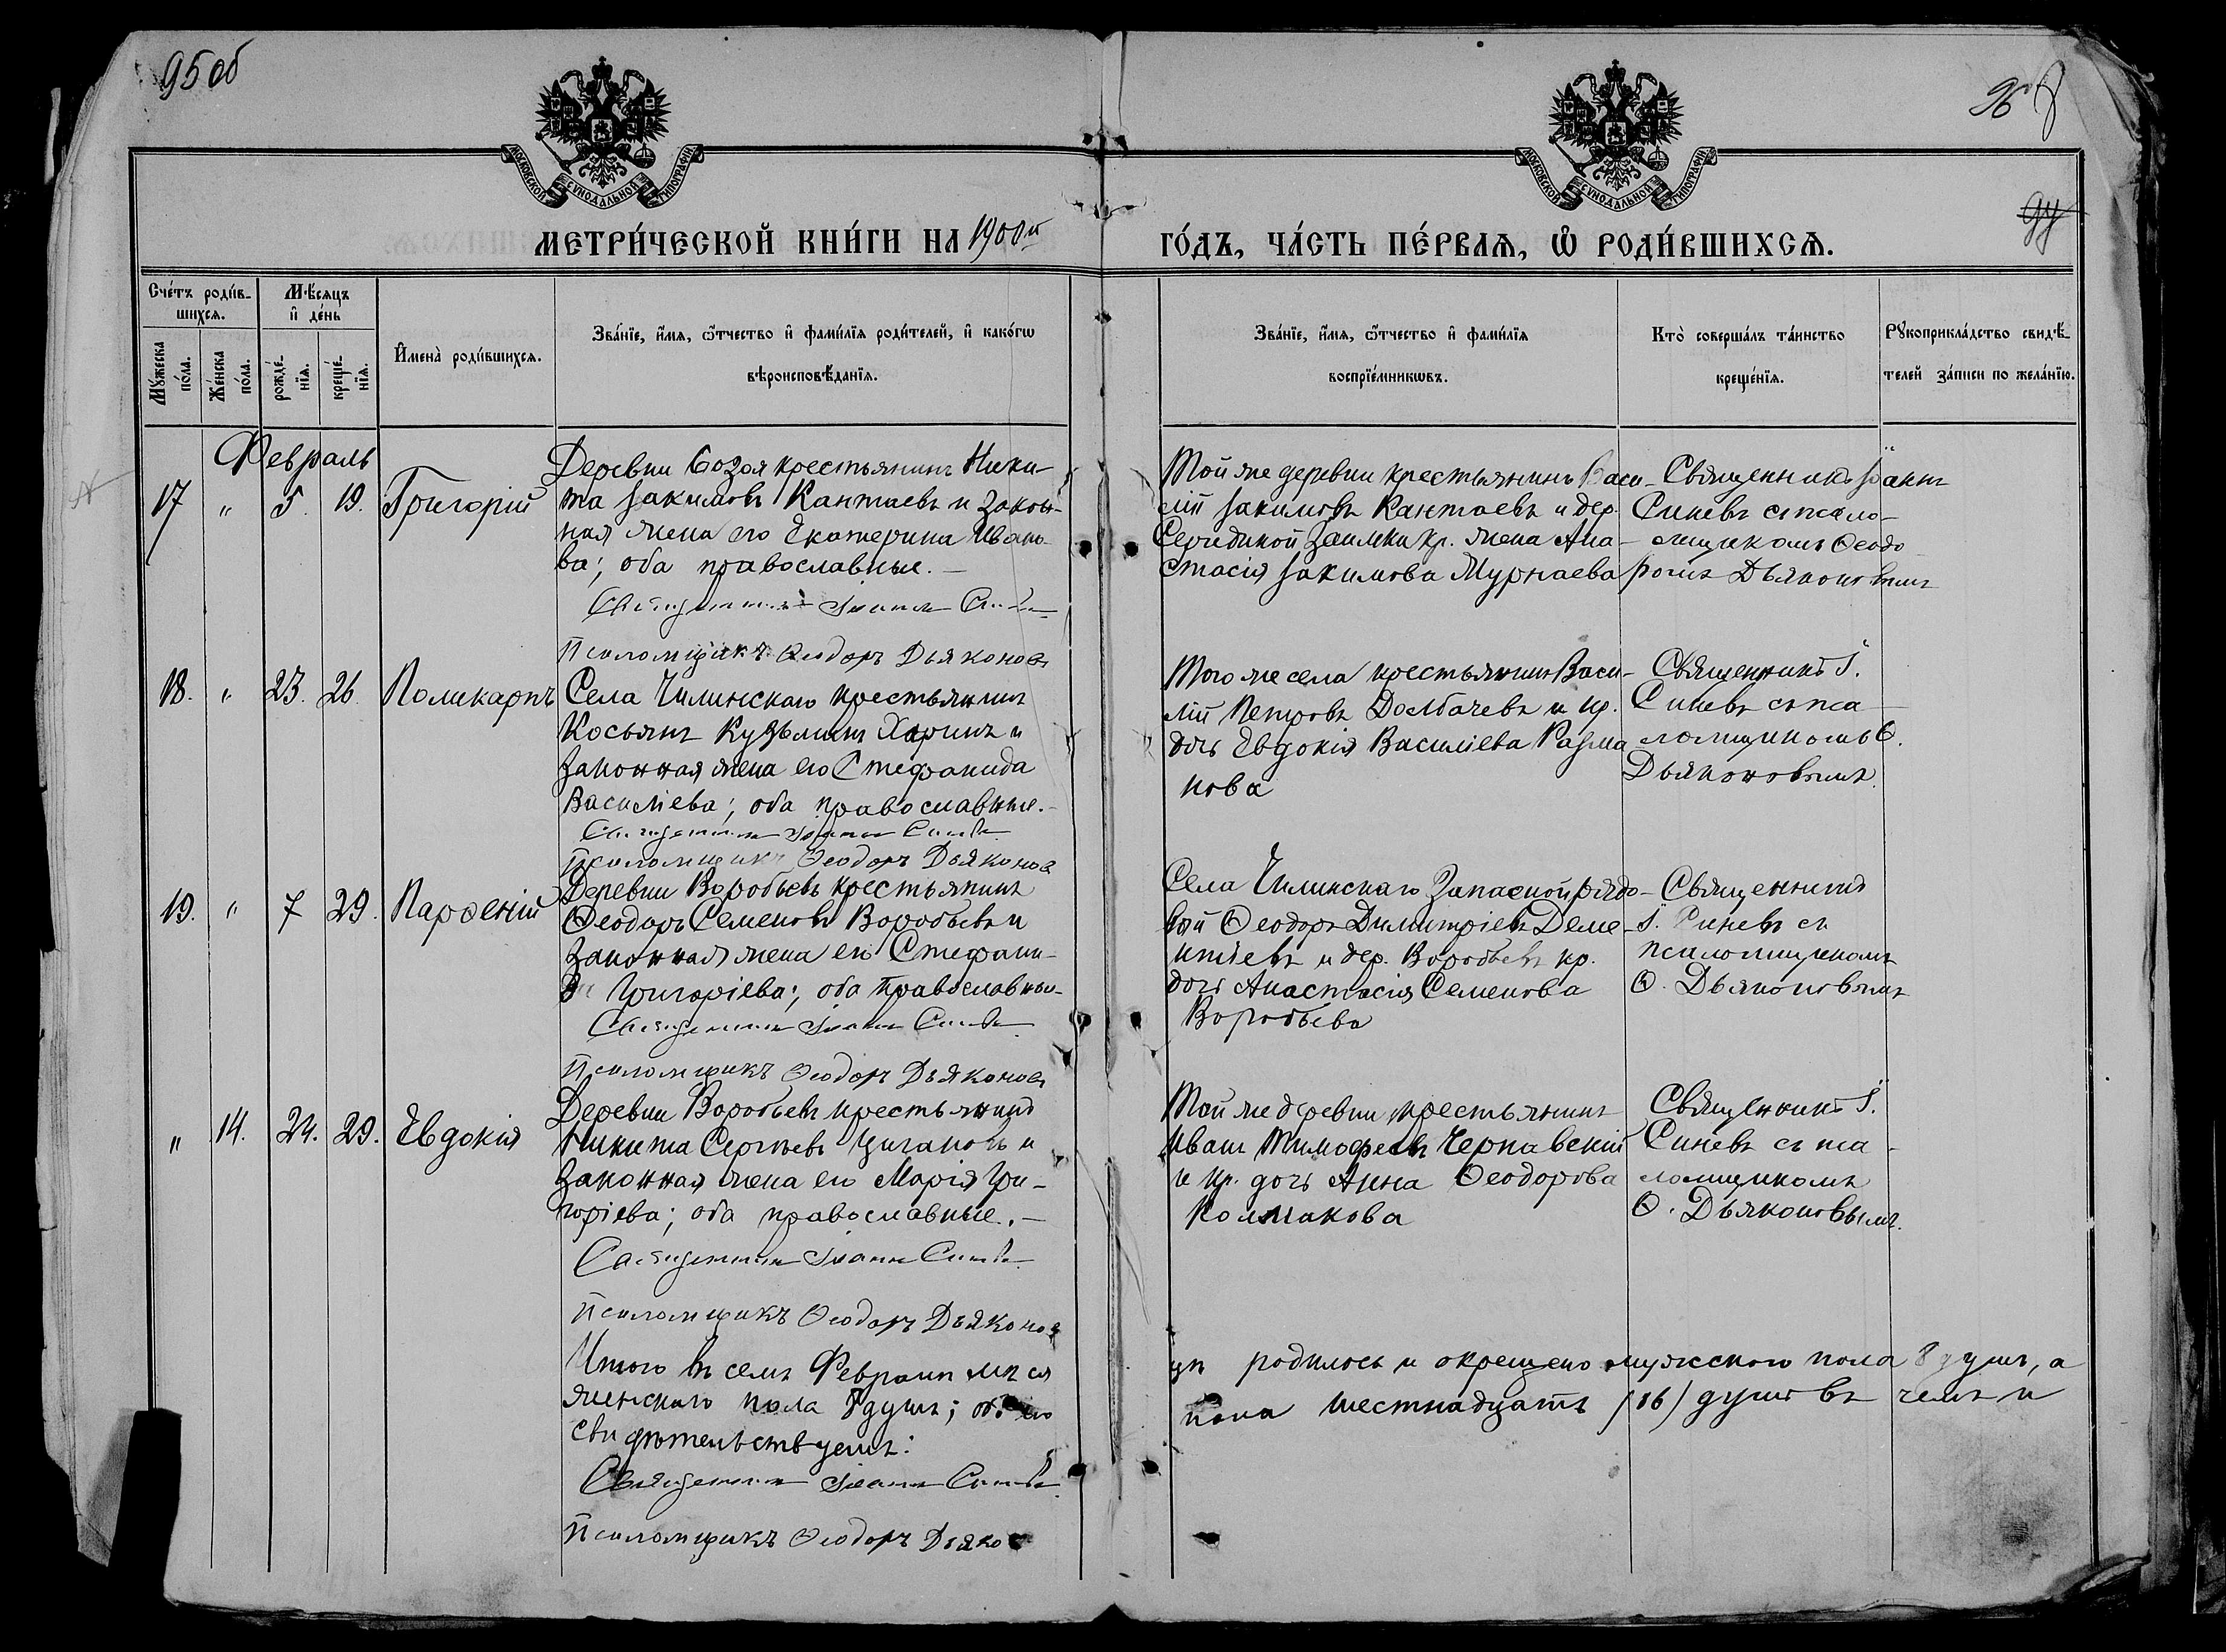 95 об
96
МОСКОВСКОЙ СѴНОДАЛЬНОЙ ТИПОГРАФІИ
МОСКОВСКОЙ СѴНОДАЛЬНОЙ ТИПОГРАФІИ
МЕТРИ́ЧЕСКОЙ КНИ́ГИ НА 1900й
ГО́ДЪ, ЧА́СТЬ ПЕ́РВАѦ, Ѡ РОДИ́ВШИХСѦ.
Сче́тъ роди́в-
шихсѧ.
Мꙋ́жеска по́ла.
Же́нска по́ла.
Мѣ́сѧцъ и де́нь
рожде́-нїѧ.
креще́-нїѧ.
Имена̀ роди́вшихсѧ.
Зва́нїе, и́мѧ, ѻ́тчество и фами́лїѧ роди́телей, и како́гѡ
вѣроисповѣ́данїѧ.
Зва́нїе, и́мѧ, ѻ́тчество и фами́лїѧ
воспрїе́мникѡвъ.
Кто̀ соверша́лъ та́инство
креще́нїѧ.
Рꙋкоприкла́дство свидѣ́-
телей за́писи по жела́нїю.
Февраль
17 " 5. 19. Григорій
Деревни Созоя крестьянинъ Ники-
та Іакимовъ Кантаевъ и закон-
ная жена его Екатерина Ивано-
ва; оба православные. —
Священникъ Іоаннъ Синевъ
Псаломщикъ Ѳеодоръ Дьяконовъ
Той же деревни крестьянинъ Васи-
лій Іакимовъ Кантаевъ и дер.
Середкиной Заимки кр. жена Ана-
стасія Іакимова Мурнаева
Священникъ Іоаннъ
Синевъ съ псало-
мщикомъ Ѳеодо-
ромъ Дьяконовымъ
18. " 23. 26. Поликарпъ
Села Чилинскаго крестьянинъ
Косьянъ Кузьминъ Харинъ и
законная жена его Стефанида
Василіева; оба православные. —
Священникъ Іоаннъ Синевъ
Псаломщикъ Ѳеодоръ Дьяконов
Того же села крестьянинъ Васи-
лій Петровъ Долбачевъ и кр.
дочь Евдокія Василіева Разма
нова
Священникъ І.
Синевъ съ пса-
ломщикомъ Ѳ.
Дьяконовымъ.
19. " 7 29. Парѳеній
Деревни Воробьевъ крестьянинъ
Ѳеодоръ Семеновъ Воробьевъ и
законная жена его Стефани-
да Григоріева; оба православны-
Священникъ Іоаннъ Синевъ
Псаломщикъ Ѳеодоръ Дьяконовъ
Села Чилинскаго Запасной рядо-
вый Ѳеодоръ Димитріевъ Деме-
нтьевъ и дер. Воробьевъ кр.
дочь Анастасія Семенова
Воробьева
Священникъ
І. Синевъ съ
псаломщикомъ
Ѳ. Дьяконовымъ
" 14. 24. 29. Евдокія
Деревни Воробьевъ крестьянинъ
Никита Сергѣевъ Цыгановъ и
законная жена его Марія Гри-
горіева; оба православные. —
Священникъ Іоаннъ Синевъ
Псаломщикъ Ѳеодоръ Дьяконов
Той же деревни крестьянинъ
Иванъ Тимофеевъ Чернавскій
и кр. дочь Анна Ѳеодорова
Колмакова
Священникъ І.
Синевъ съ пса-
ломщикомъ
Ѳ. Дьяконовымъ.
Итого въ семъ Февралѣ мѣся
цѣ родилось и окрещено мужескаго пола 8 душъ, а
женскаго пола 8 душъ; обоего
пола шестнадцать (16) душъ въ чемъ и
свидѣтельствуемъ:
Священникъ Іоаннъ Синевъ
Псаломщикъ Ѳеодоръ Дьяко